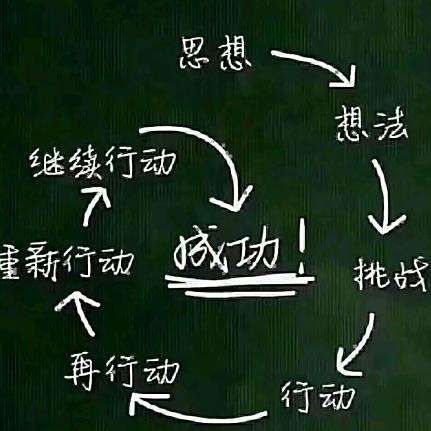 思想
想法
挑战
行动
再行动
重新行动
继续行动
成功！